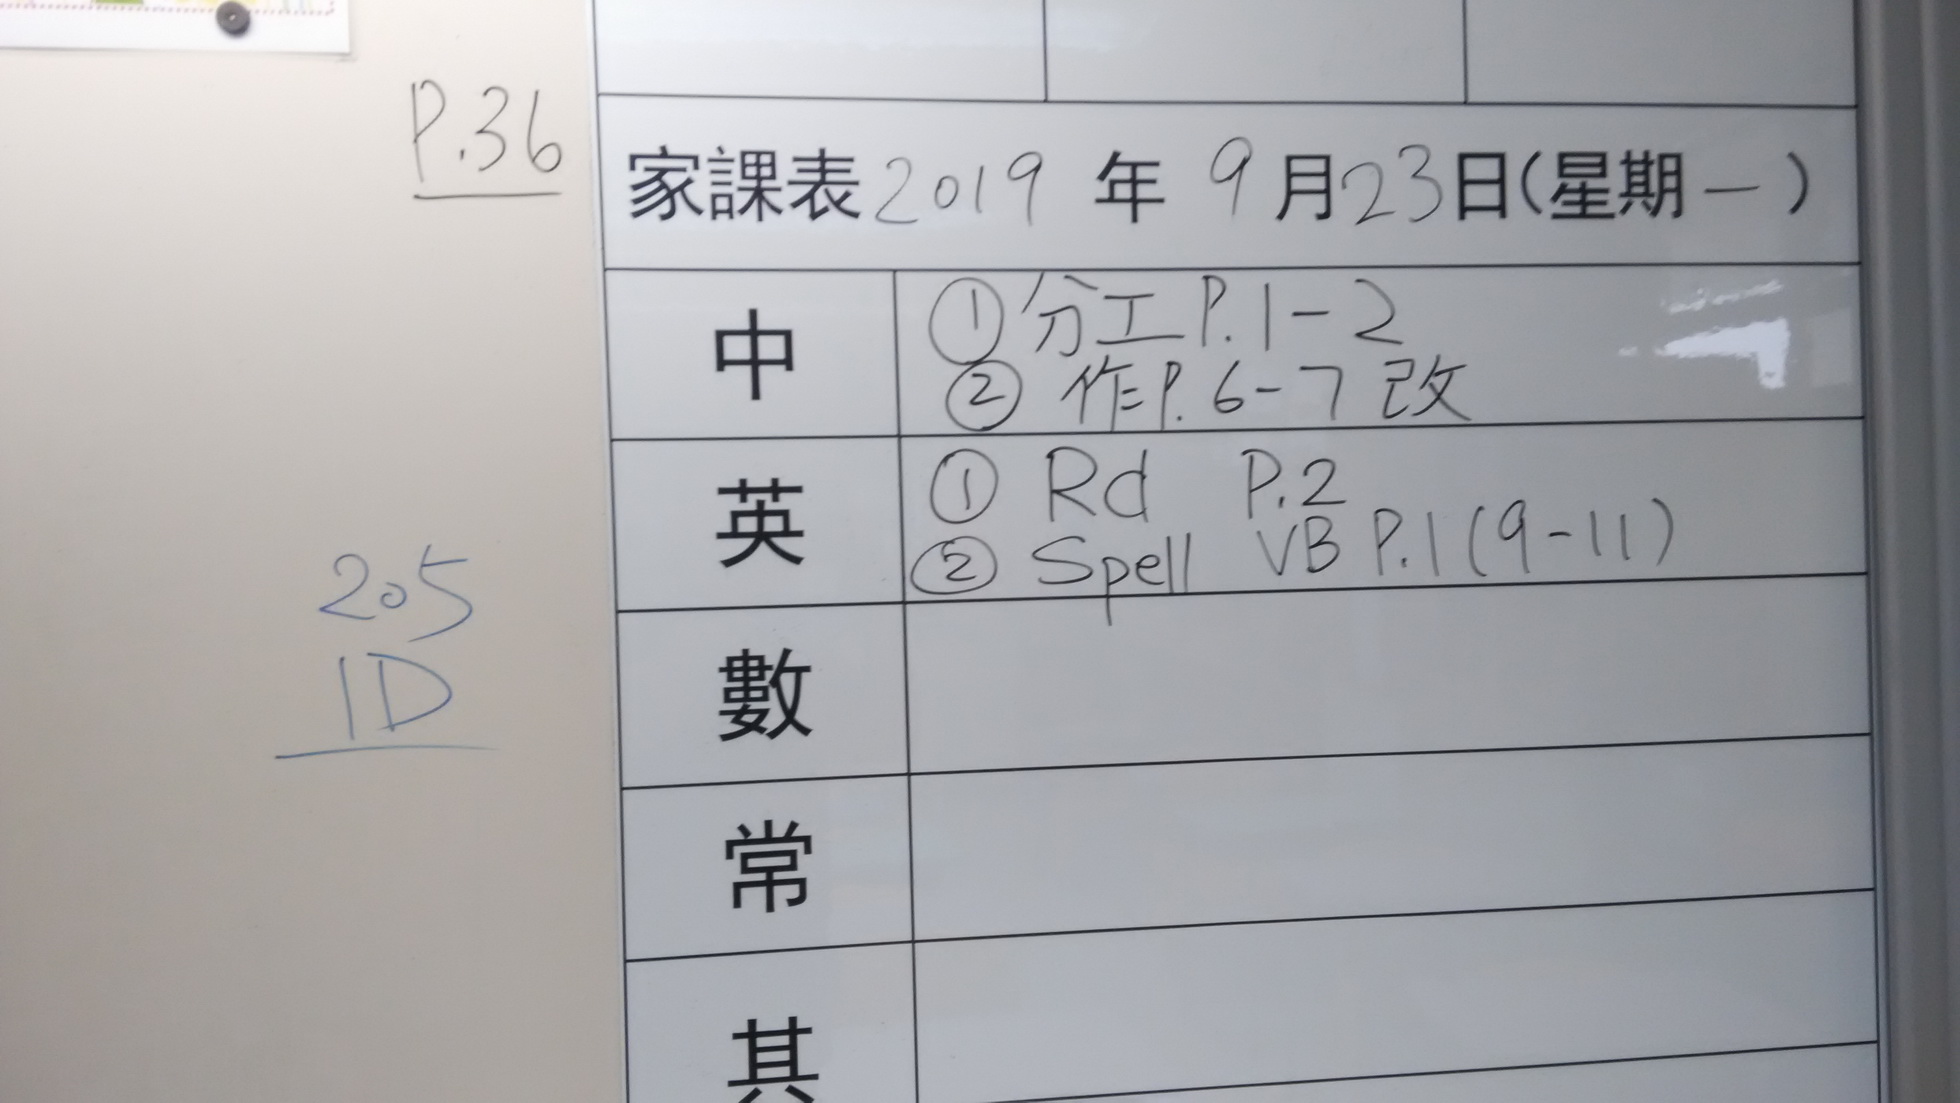 P.36
家課表 2019 年 9 月 23 日(星期一)
中
① 分工 P.1-2
② 作 P.6-7 改
英
① Rd P.2
② Spell VB P.1 (9-11)
205
1D
數
常
其